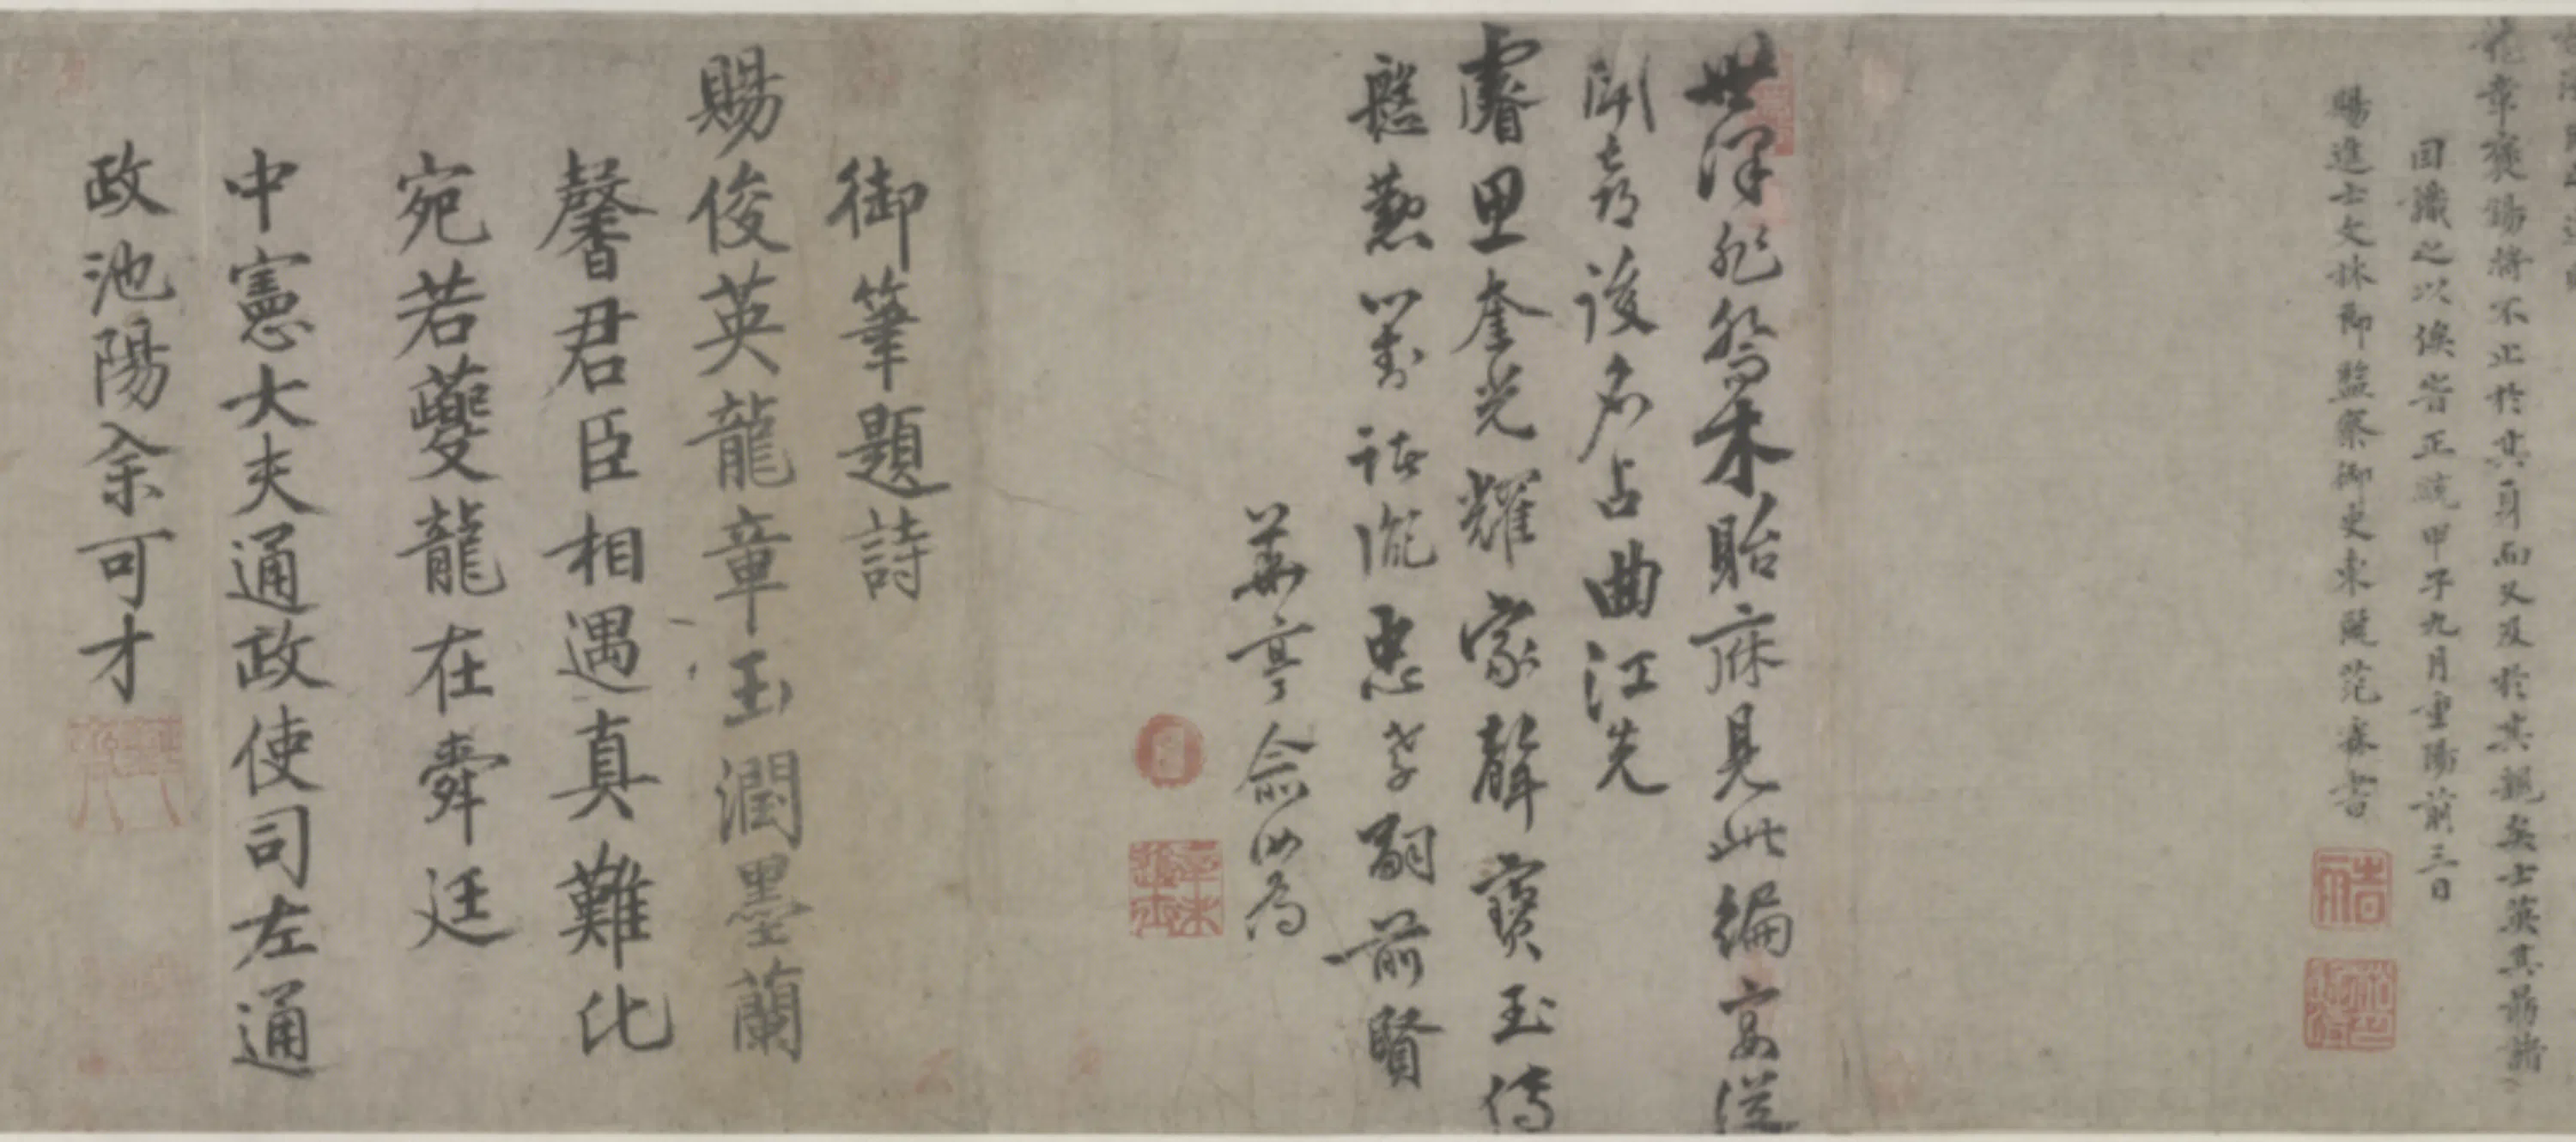 花章襃錫將不止於其身而又及於其親矣士英其勗諸
因識之以俟皆正統甲子九月重陽前三日
賜進士文林郎監察御史東范霖書
世澤貽庥見此編宴從
開喜後名占曲江先
睿思奎光耀家聲寶玉傳
慇懃以對諸忠孝嗣前賢
華亭俞
御筆題詩
賜俊英龍章玉潤墨蘭
馨君臣相遇真難比
宛若夔龍在舜廷
中憲大夫通政使司左通
政池陽余可才